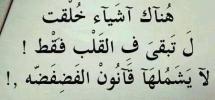 هُنآك آشَيآء خُلّقت
لَ تبقىَ فِ القَلْب فقْط !
لآ يشملُهآ قآنُون الفضِفضّه ,!